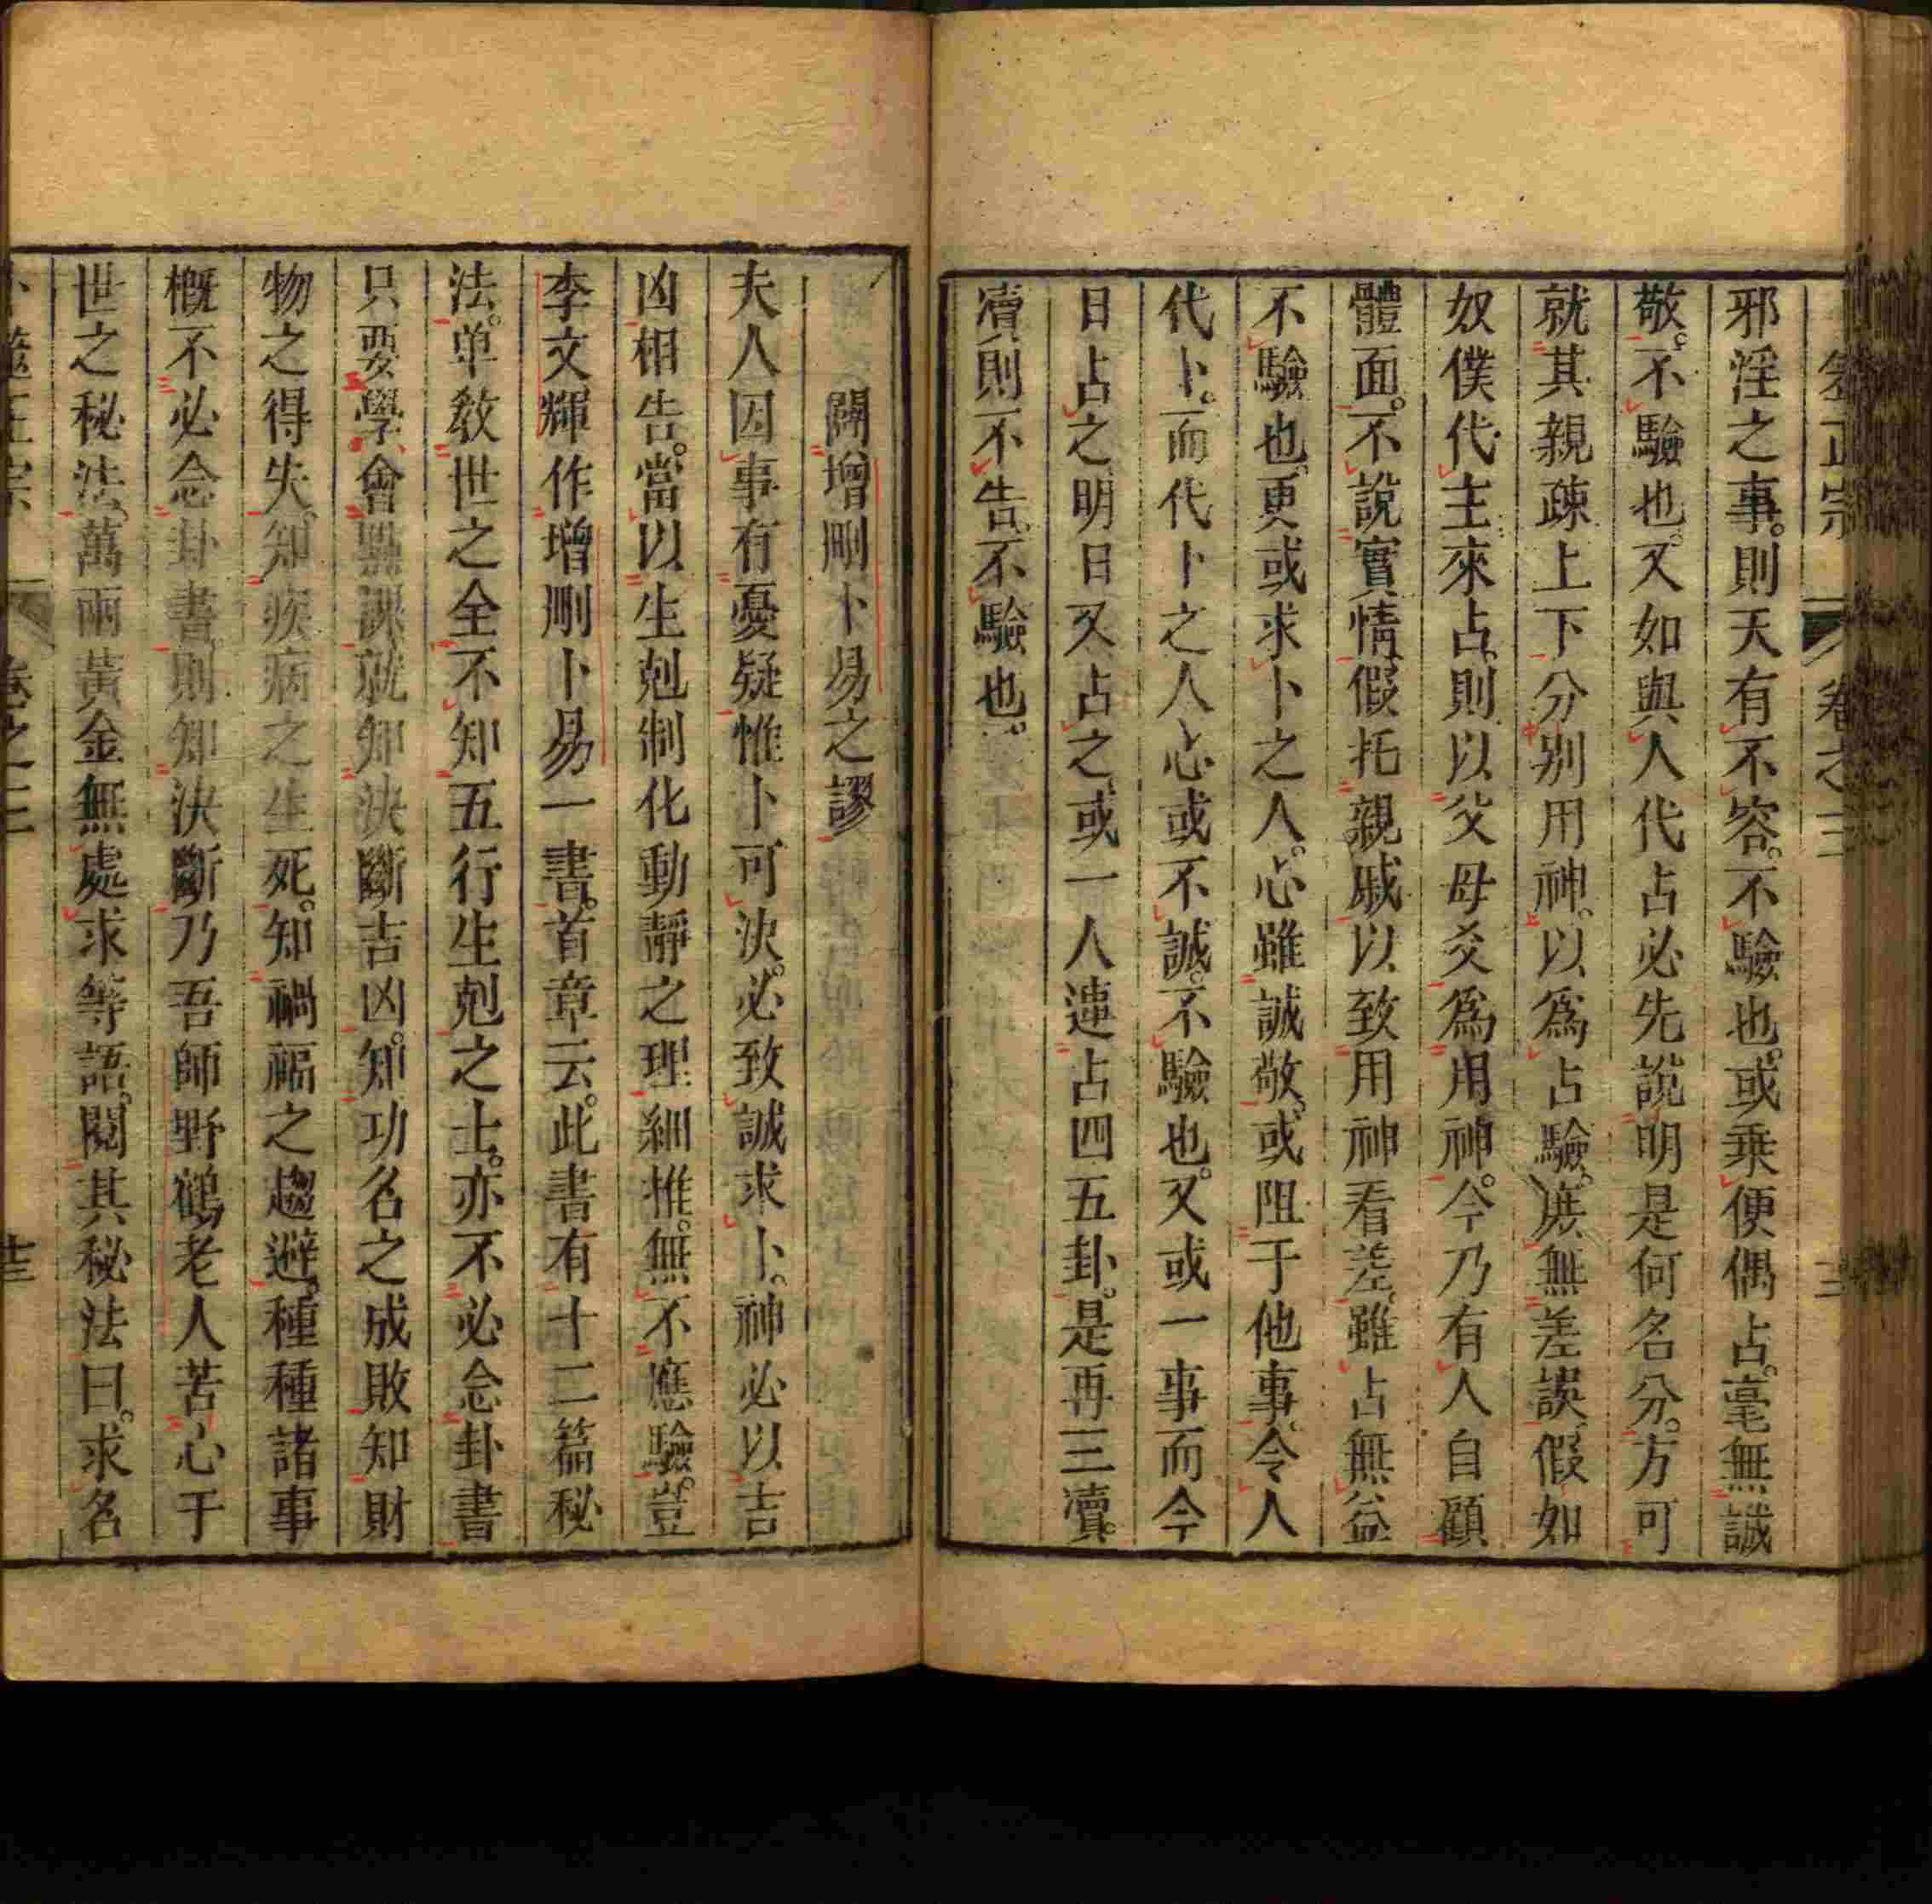 筮正宗　卷之三
邪淫之事。則天有不容。不驗也。或乘便偶占。毫無誠
敬。不驗也。又如與人代占必先說明是何名分。方可
就其親疎上下分别用神。以爲占驗。庶無差誤。假如
奴僕代主來占。則以父母爻爲用神。今乃有人自顧
體面。不說實情。假托親戚以致用神看差。雖占無益
不驗也。更或求卜之人。心雖誠敬。或阻于他事。令人
代卜。而代卜之人心或不誠。不驗也。又或一事而今
日占之。明日又占之。或一人連占四五卦。是再三瀆。
瀆則不告。不驗也。
闢增刪卜易之謬
夫人因事有憂疑惟卜可決。必致誠求卜。神必以吉
凶相告。當以生剋制化動靜之理細推。無不應驗。豈
李文輝作增刪卜易一書。首章云。此書有十二篇秘
法。单教世之全不知五行生剋之士。亦不必念卦書
只要學會點課。就知決斷吉凶。知功名之成敗知財
物之得失。知疾病之生死。知禍福之趨避。種種諸事
概不必念卦書。則知決斷乃吾師野鶴老人苦心于
世之秘法。萬兩黃金無處求等語。閱其秘法曰。求名
卜筮正宗　卷之三　廿三